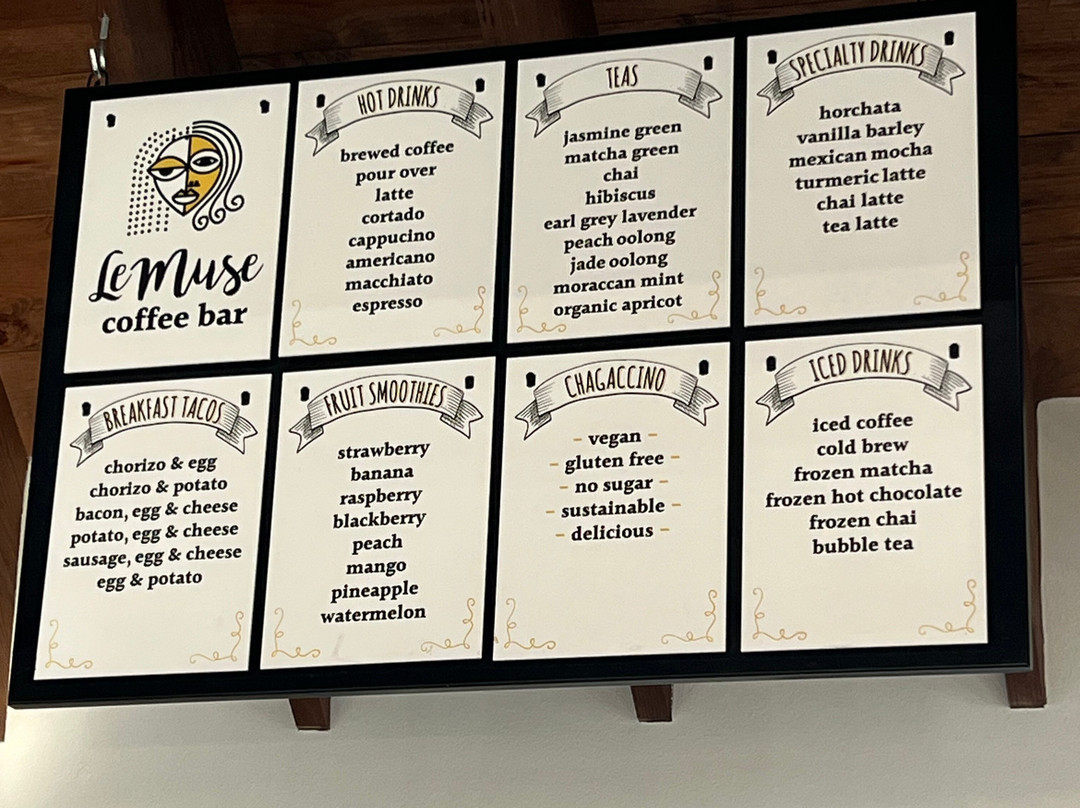 LeMuse
coffee bar
HOT DRINKS
brewed coffee
pour over
latte
cortado
cappucino
americano
macchiato
espresso
TEAS
jasmine green
matcha green
chai
hibiscus
earl grey lavender
peach oolong
jade oolong
moraccan mint
organic apricot
SPECIALTY DRINKS
horchata
vanilla barley
mexican mocha
turmeric latte
chai latte
tea latte
BREAKFAST TACOS
chorizo & egg
chorizo & potato
bacon, egg & cheese
potato, egg & cheese
sausage, egg & cheese
egg & potato
FRUIT SMOOTHIES
strawberry
banana
raspberry
blackberry
peach
mango
pineapple
watermelon
CHAGACCINO
- vegan -
- gluten free -
- no sugar -
- sustainable -
- delicious -
ICED DRINKS
iced coffee
cold brew
frozen matcha
frozen hot chocolate
frozen chai
bubble tea